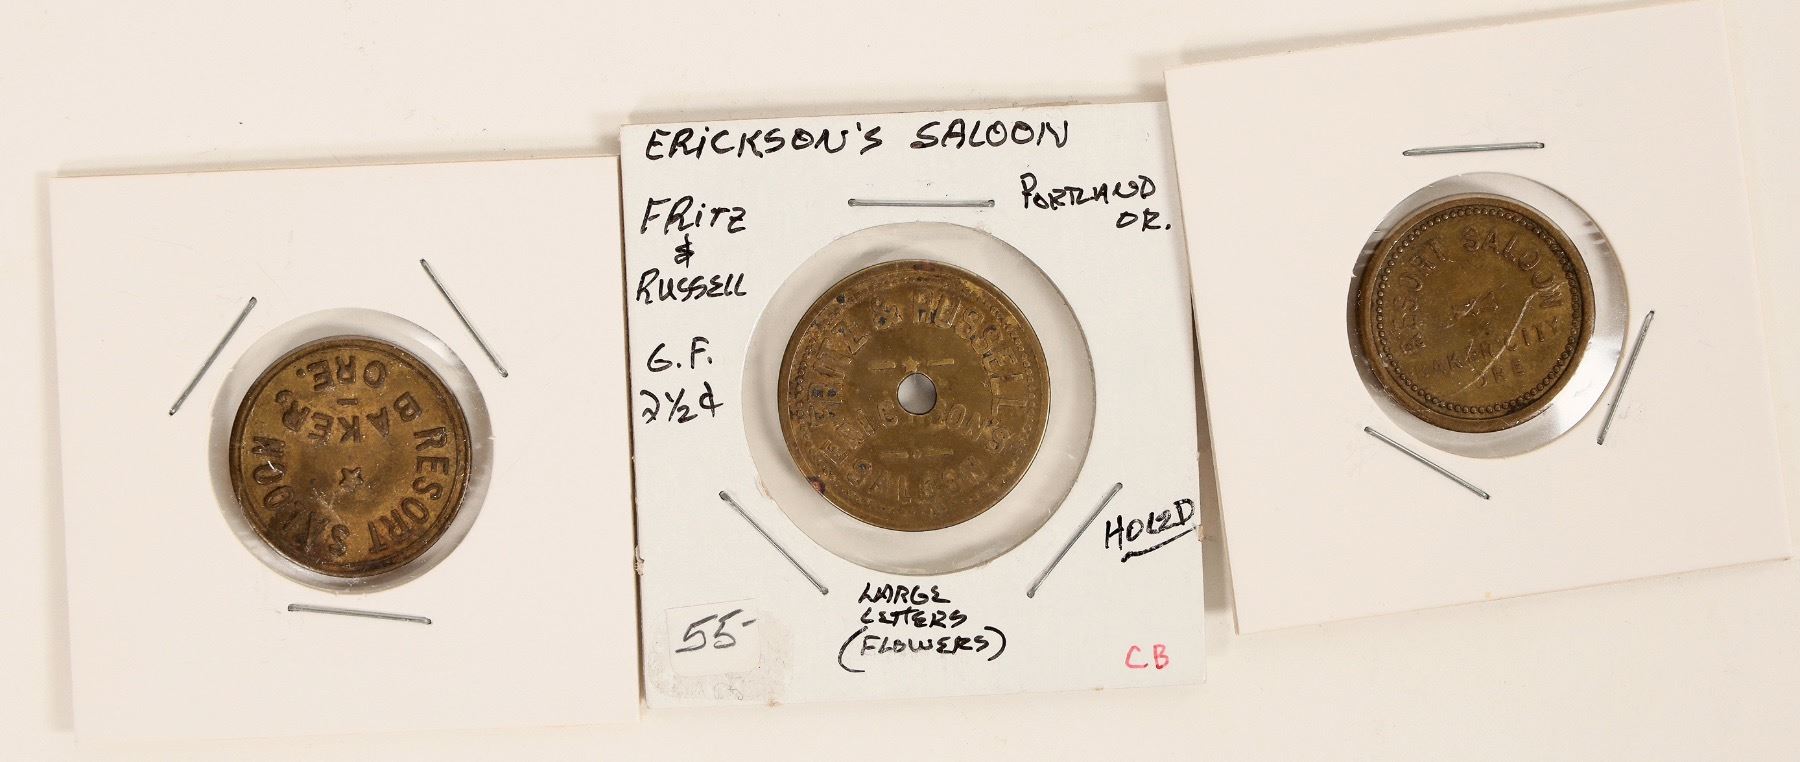 RESORT SALOON
BAKER
-
ORE.
ERICKSON'S SALOON
PORTLAND
OR.
FRITZ
&
RUSSELL
G.F.
2½¢
FRITZ & RUSSELL
ERICKSON'S
SALOON
HOLED
LARGE
LETTERS
(FLOWERS)
55-
CB
RESORT SALOON
BAKER CITY
ORE.